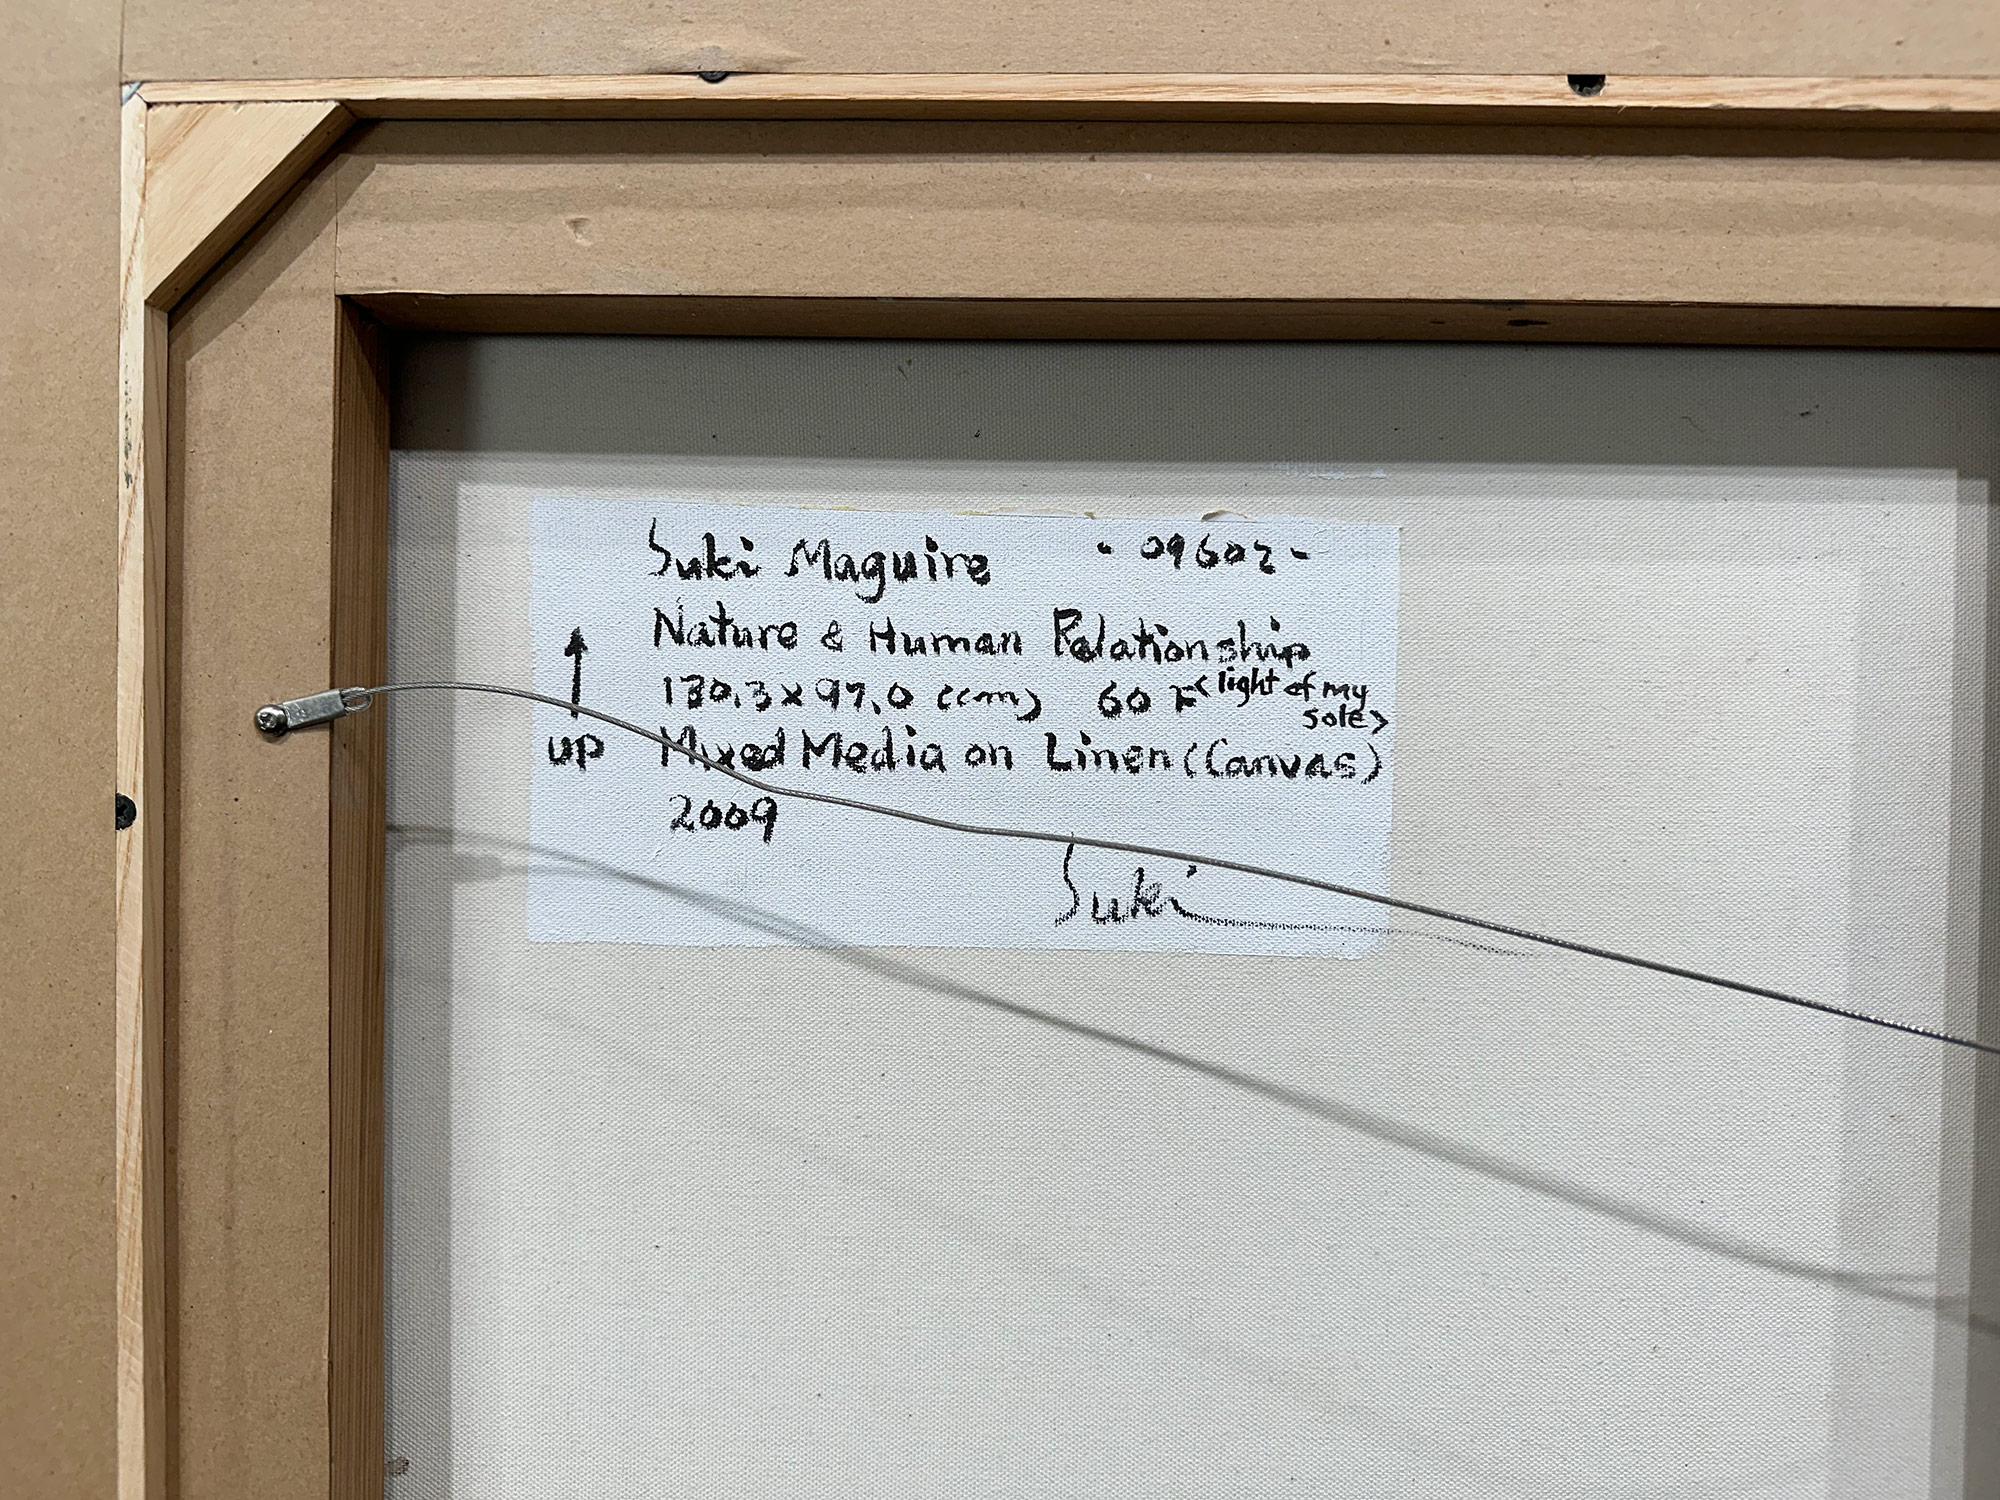 Suki Maguire - 09602 -
Nature & Human Relationship
130.3 x 97.0 (cm) 60 F <light of my
sole>
↑
up
Mixed Media on Linen (Canvas)
2009
Suki